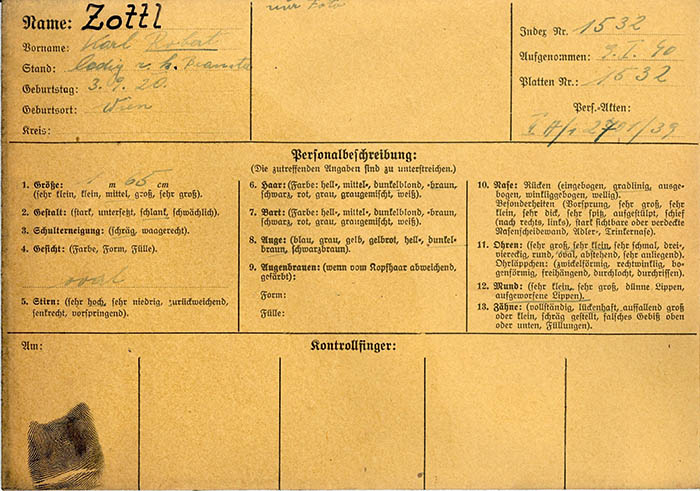 Name: Zottl
nur Foto
Vorname: Karl Robert
Stand: ledig
Geburtstag: 3. 9. 20.
Geburtsort: Wien
Kreis:
Index Nr. 1532
Aufgenommen: 9. I. 40
Platten Nr.: 1532
Pers.-Akten:
Personalbeschreibung:
(Die zutreffenden Angaben sind zu unterstreichen.)
1. Größe: 1 m 65 cm
(sehr klein, klein, mittel, groß, sehr groß).
2. Gestalt: (stark, untersetzt, schlank, schwächlich).
3. Schulterneigung: (schräg, waagerecht).
4. Gesicht: (Farbe, Form, Fülle).
oval
5. Stirn: (sehr hoch, sehr niedrig, zurückweichend,
senkrecht, vorspringend).
6. Haar: (Farbe: hell-, mittel-, dunkelblond, -braun,
schwarz, rot, grau, graugemischt, weiß).
7. Bart: (Farbe: hell-, mittel-, dunkelblond, -braun,
schwarz, rot, grau, graugemischt, weiß).
8. Auge: (blau, grau, gelb, gelbrot, hell-, dunkel-
braun, schwarzbraun).
9. Augenbrauen: (wenn vom Kopfhaar abweichend,
gefärbt):
Form:
Fülle:
10. Nase: Rücken (eingebogen, gradlinig, ausge-
bogen, winkliggebogen, wellig).
Besonderheiten (Vorsprung, sehr groß, sehr
klein, sehr dick, sehr spitz, aufgestülpt, schief
(nach rechts, links), stark sichtbare oder verdeckte
Nasenscheidewand, Adler-, Trinkernase).
11. Ohren: (sehr groß, sehr klein, sehr schmal, drei-,
viereckig, rund, oval, abstehend, sehr anliegend).
Ohrläppchen: (zwickelförmig, rechtwinklig, bo-
genförmig, freihängend, durchlocht, durchrissen).
12. Mund: (sehr klein, sehr groß, dünne Lippen,
aufgeworfene Lippen).
13. Zähne: (vollständig, lückenhaft, auffallend groß
oder klein, schräg gestellt, falsches Gebiß oben
oder unten, Füllungen).
Am:
Kontrollfinger: